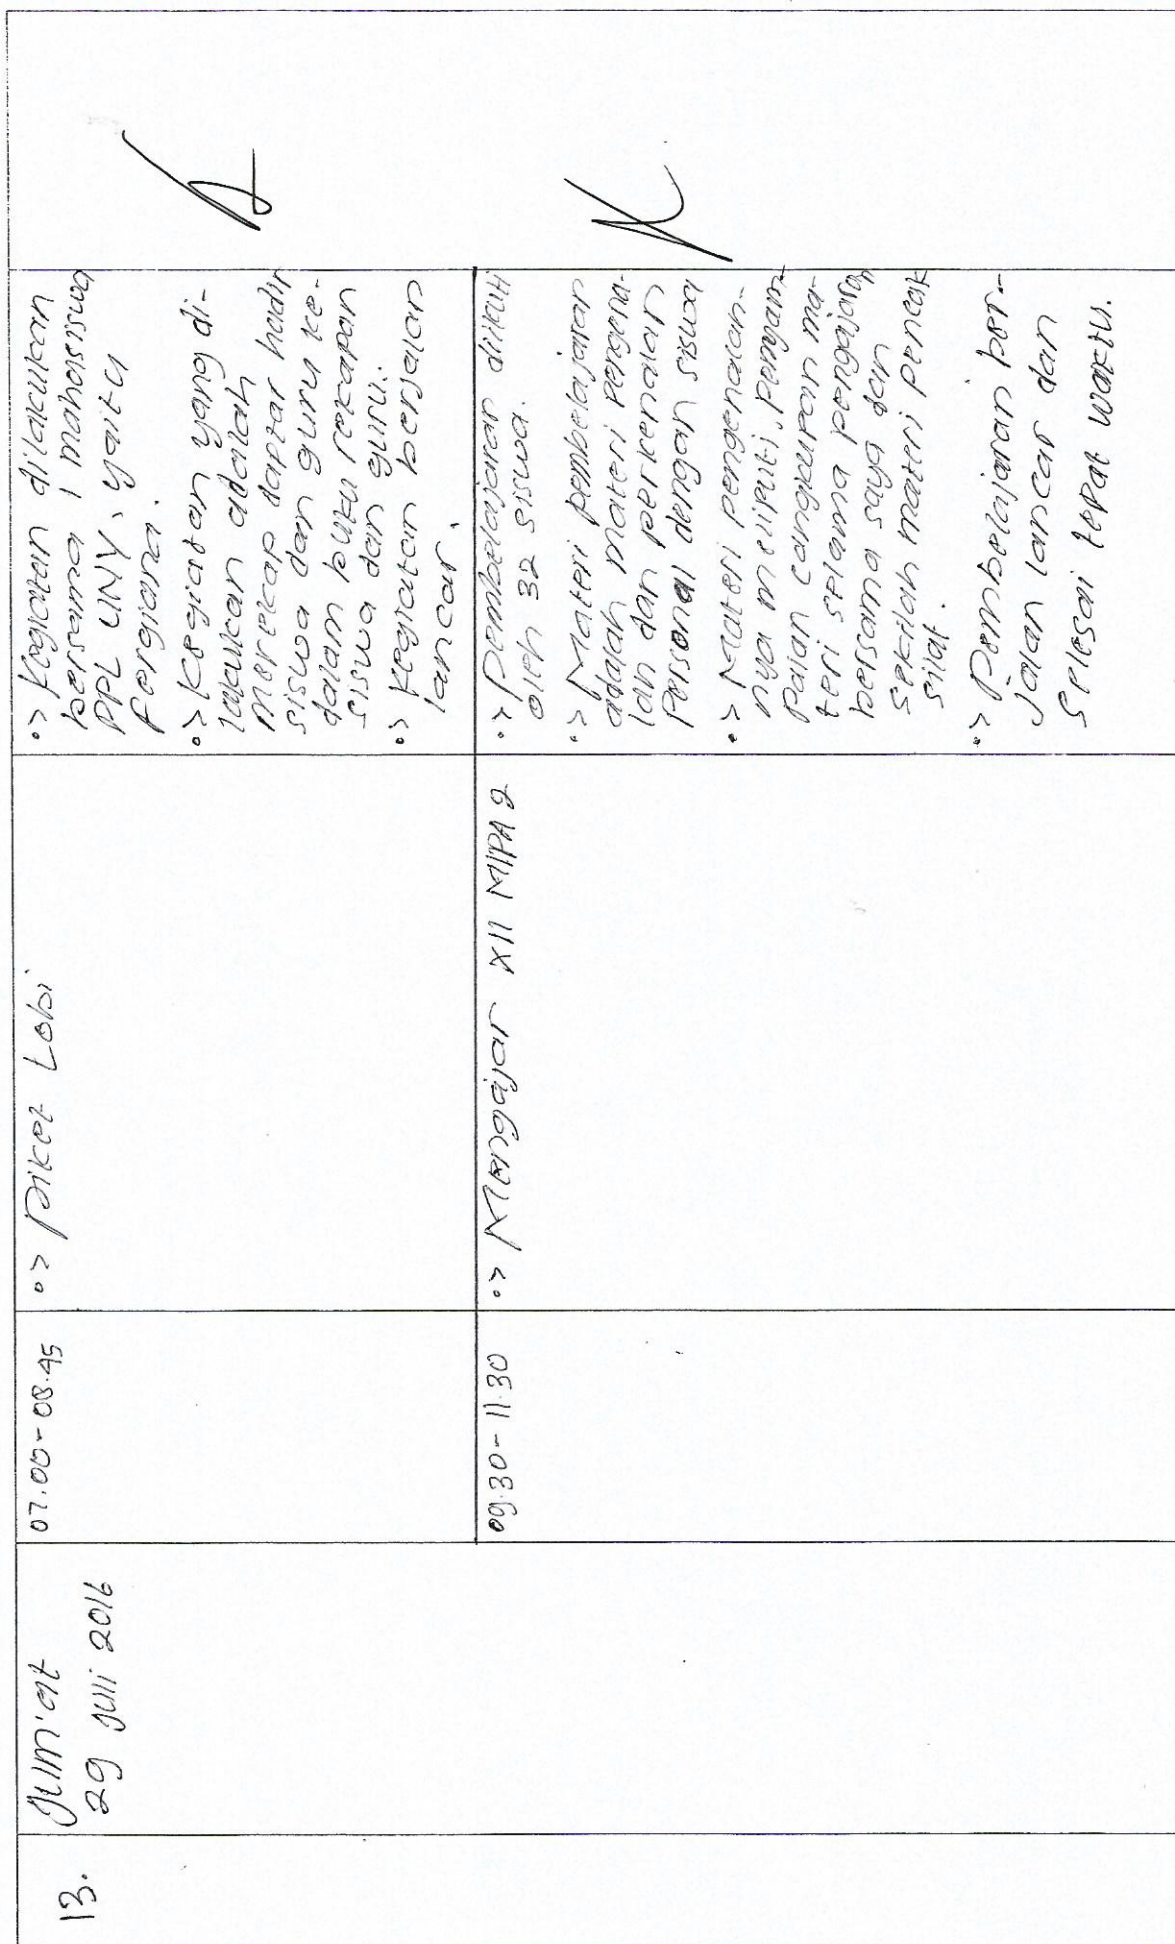 13.
Jum'at
29 Juli 2016
07.00 - 08.45
•> Piket Lobi
•> Kegiatan dilakukan
bersama 1 mahasiswa
PPL UNY, yaitu
Fergiana.
•> Kegiatan yang di-
lakukan adalah
merekap daftar hadir
siswa dan guru ke-
dalam buku rekapan
siswa dan guru.
•> Kegiatan berjalan
lancar.
09.30 - 11.30
•> Mengajar XII MIPA 2
•> Pembelajaran diikuti
oleh 32 siswa.
•> Materi pembelajaran
adalah materi pengena-
lan dan perkenalan
Personal dengan siswa
•> Materi pengenalan-
nya meliputi, penyam-
paian cangkupan ma-
teri selama pengajaran
bersama saya dan
sekilah materi pencak
silat.
•> Pembelajaran ber-
jalan lancar dan
selesai tepat waktu.